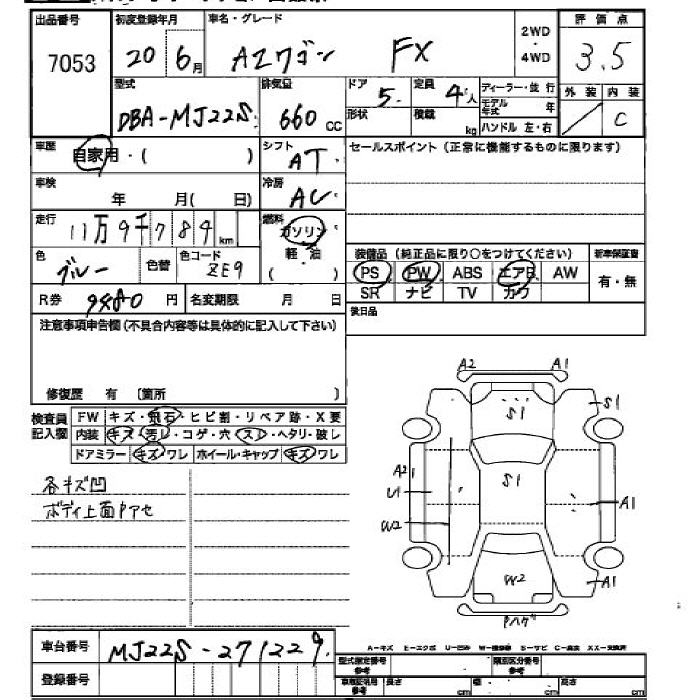 出品番号 初度登録年月 車名・グレード 2WD・4WD 評価点
7053 20 6月 AZワゴン FX 3.5
型式 排気量 ドア 5 定員 4人 ディーラー・並行 外装 内装
DBA-MJ22S 660cc 形状 積載 kg モデル年式 年 ハンドル 左・右 C
車歴 自家用・( ) シフト AT セールスポイント(正常に機能するものに限ります)
車検 年 月(日) 冷房 AC
走行 11万9千789km 燃料 ガソリン 軽・油 ( )
装備品(純正品に限り○をつけてください) 新車保証書
色 ブルー 色替 色コード ZE9
PS PW ABS エアB AW 有・無
SR ナビ TV カワ
R券 9480円 名変期限 月 日
後日品
注意事項申告欄(不具合内容等は具体的に記入して下さい)
修復歴 有 〔箇所 〕
検査員記入欄 FW キズ・飛石・ヒビ割・リペア跡・X要
内装 キズ・汚レ・コゲ・穴・スレ・ヘタリ・破レ
ドアミラー キズ・ワレ ホイール・キャップ キズ・ワレ
各キズ凹
ボディ上面Pアセ
A2 A1
S1 S1
A2 S1
U1 A1
W2
W2 A1
Pハゲ
A-キズ E-エクボ U-凹み W-補修跡 S-サビ C-腐食 XX-交換済
車台番号 MJ22S-271229
型式指定番号 参考 類別区分番号 参考
登録番号 車庫証明用 参考 長さ cm 幅 cm 高さ cm